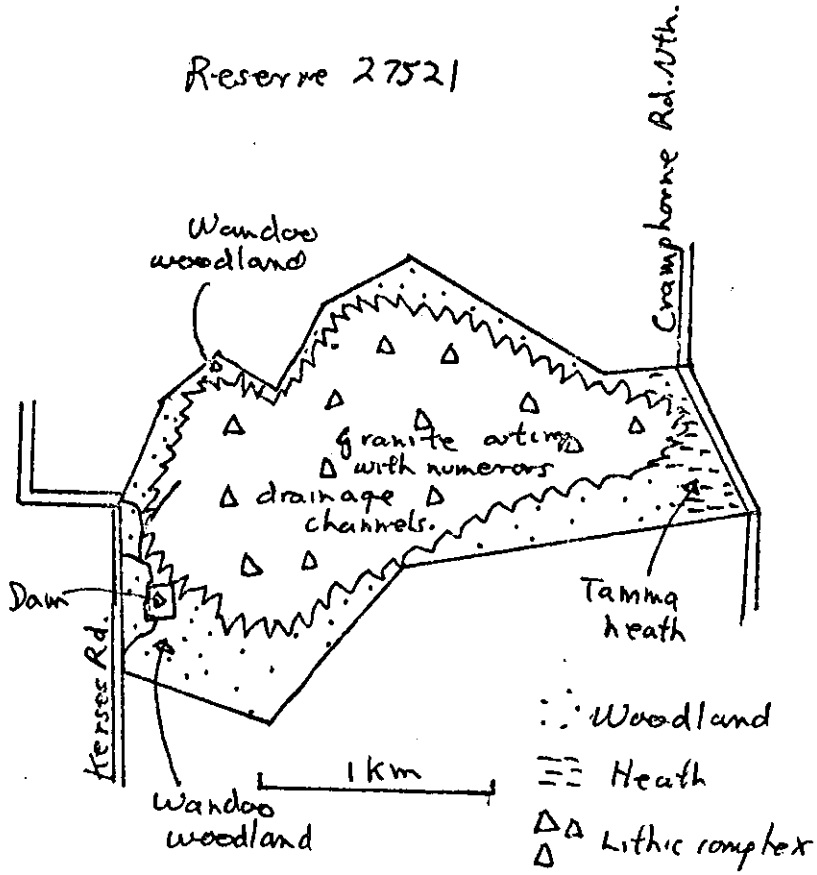 Reserve 27521
Cramphorne Rd. Nth.
Wandoo
woodland
granite
with numerous
drainage
channels.
Dam
Kerses Rd.
Tamma
heath
Wandoo
woodland
1 km
Woodland
Heath
Lithic complex